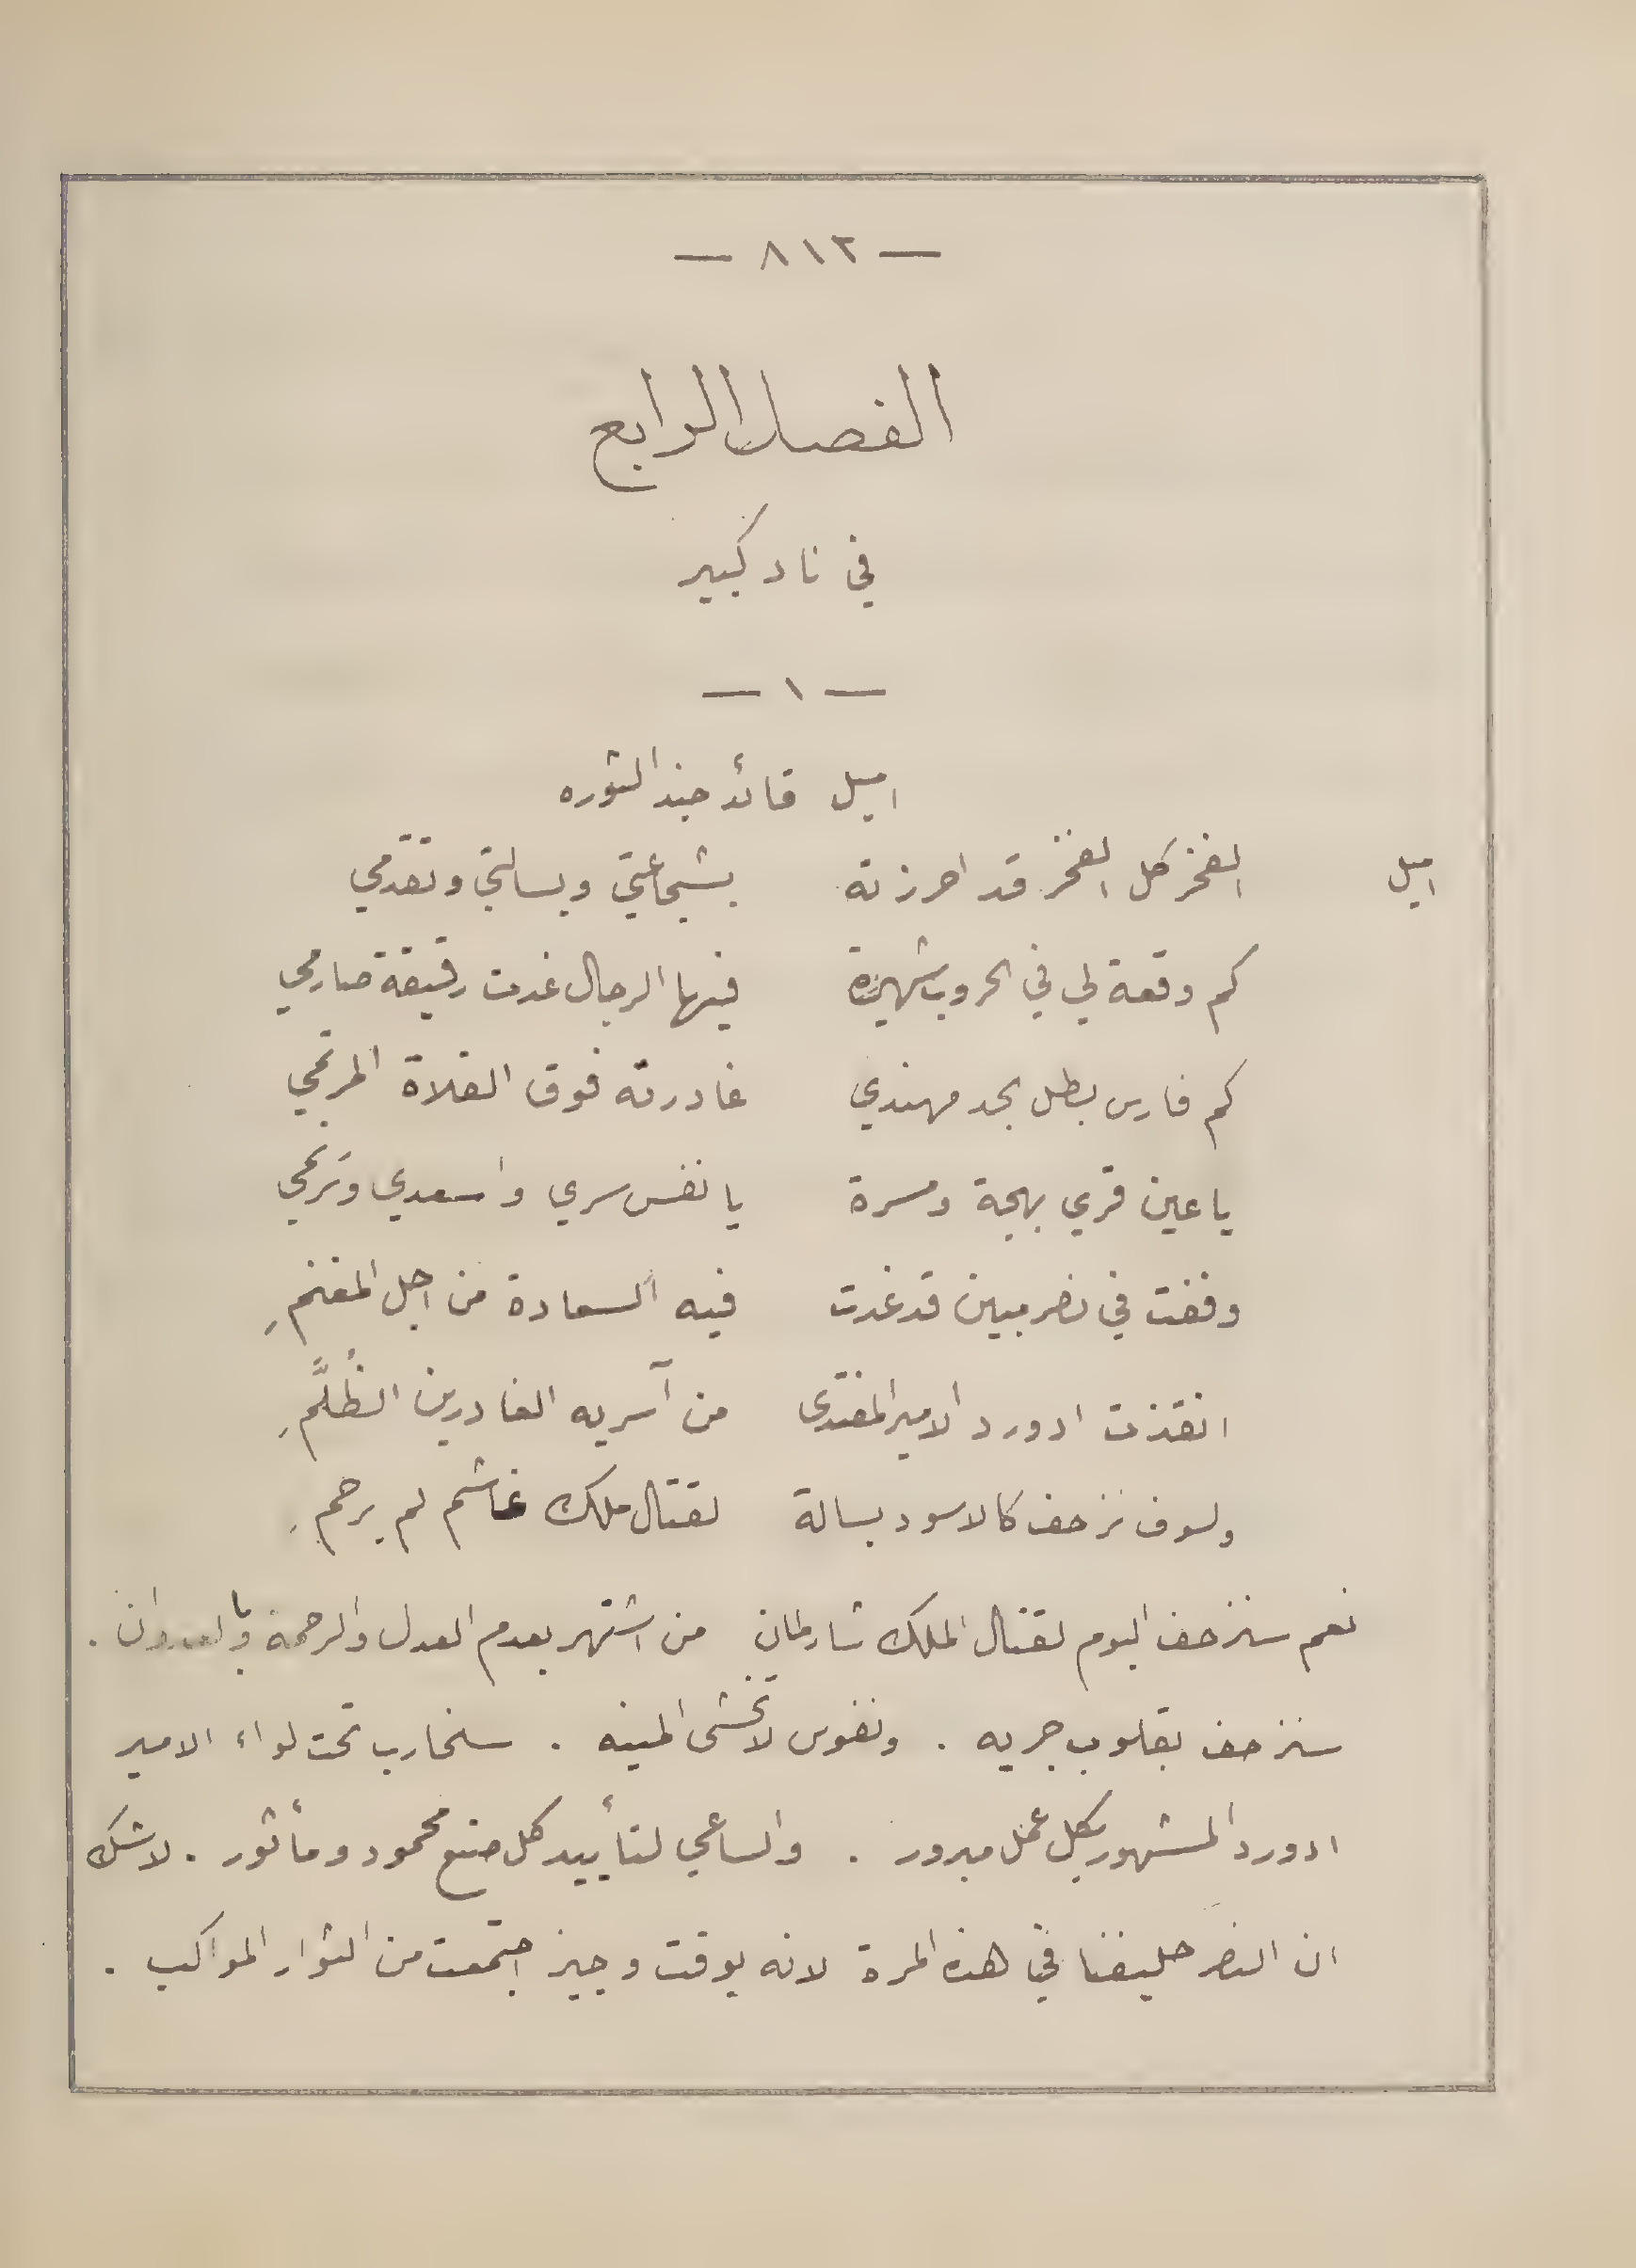 — ٨١٢ —
الفصل الرابع
في ناد كبير
— ١ —
اميل قائد جند الثوره
اميل الفخر كل الفخر قد احرزته بشجاعتي وبسالتي وتقدمي
كم وقعة لي في الحروب شهيرة فيها الرجال غدت رقيقة صارمي
كم فارس بطل بحد مهندي غادرته فوق الفلاة المرتمي
يا عين قري بهجة ومسرة يا نفس سري واسعدي وترنمي
وفقت في نصر مبين قد غدت فيه السعادة من اجل المغنمِ
انقذت ادورد الامير المفتدى من آسريه الغادرين الظُلَّمِ
ولسوف نزحف كالاسود بسالة لقتال ملك غاشم لم يرحمِ
نعم سنزحف اليوم لقتال الملك شارلمان من اشتهر بعدم العدل والرحمة وبالعدوان .
سنزحف بقلوب جريه . ونفوس لا تخشى المنيه . سنحارب تحت لواء الامير
ادورد المشهور بكل عمل مبرور . والساعي لتأييد كل صنع محمود ومأثور . لاشك
ان النصر حليفنا في هذه المرة لانه بوقت وجيز اجتمعت من الثوار المواكب .